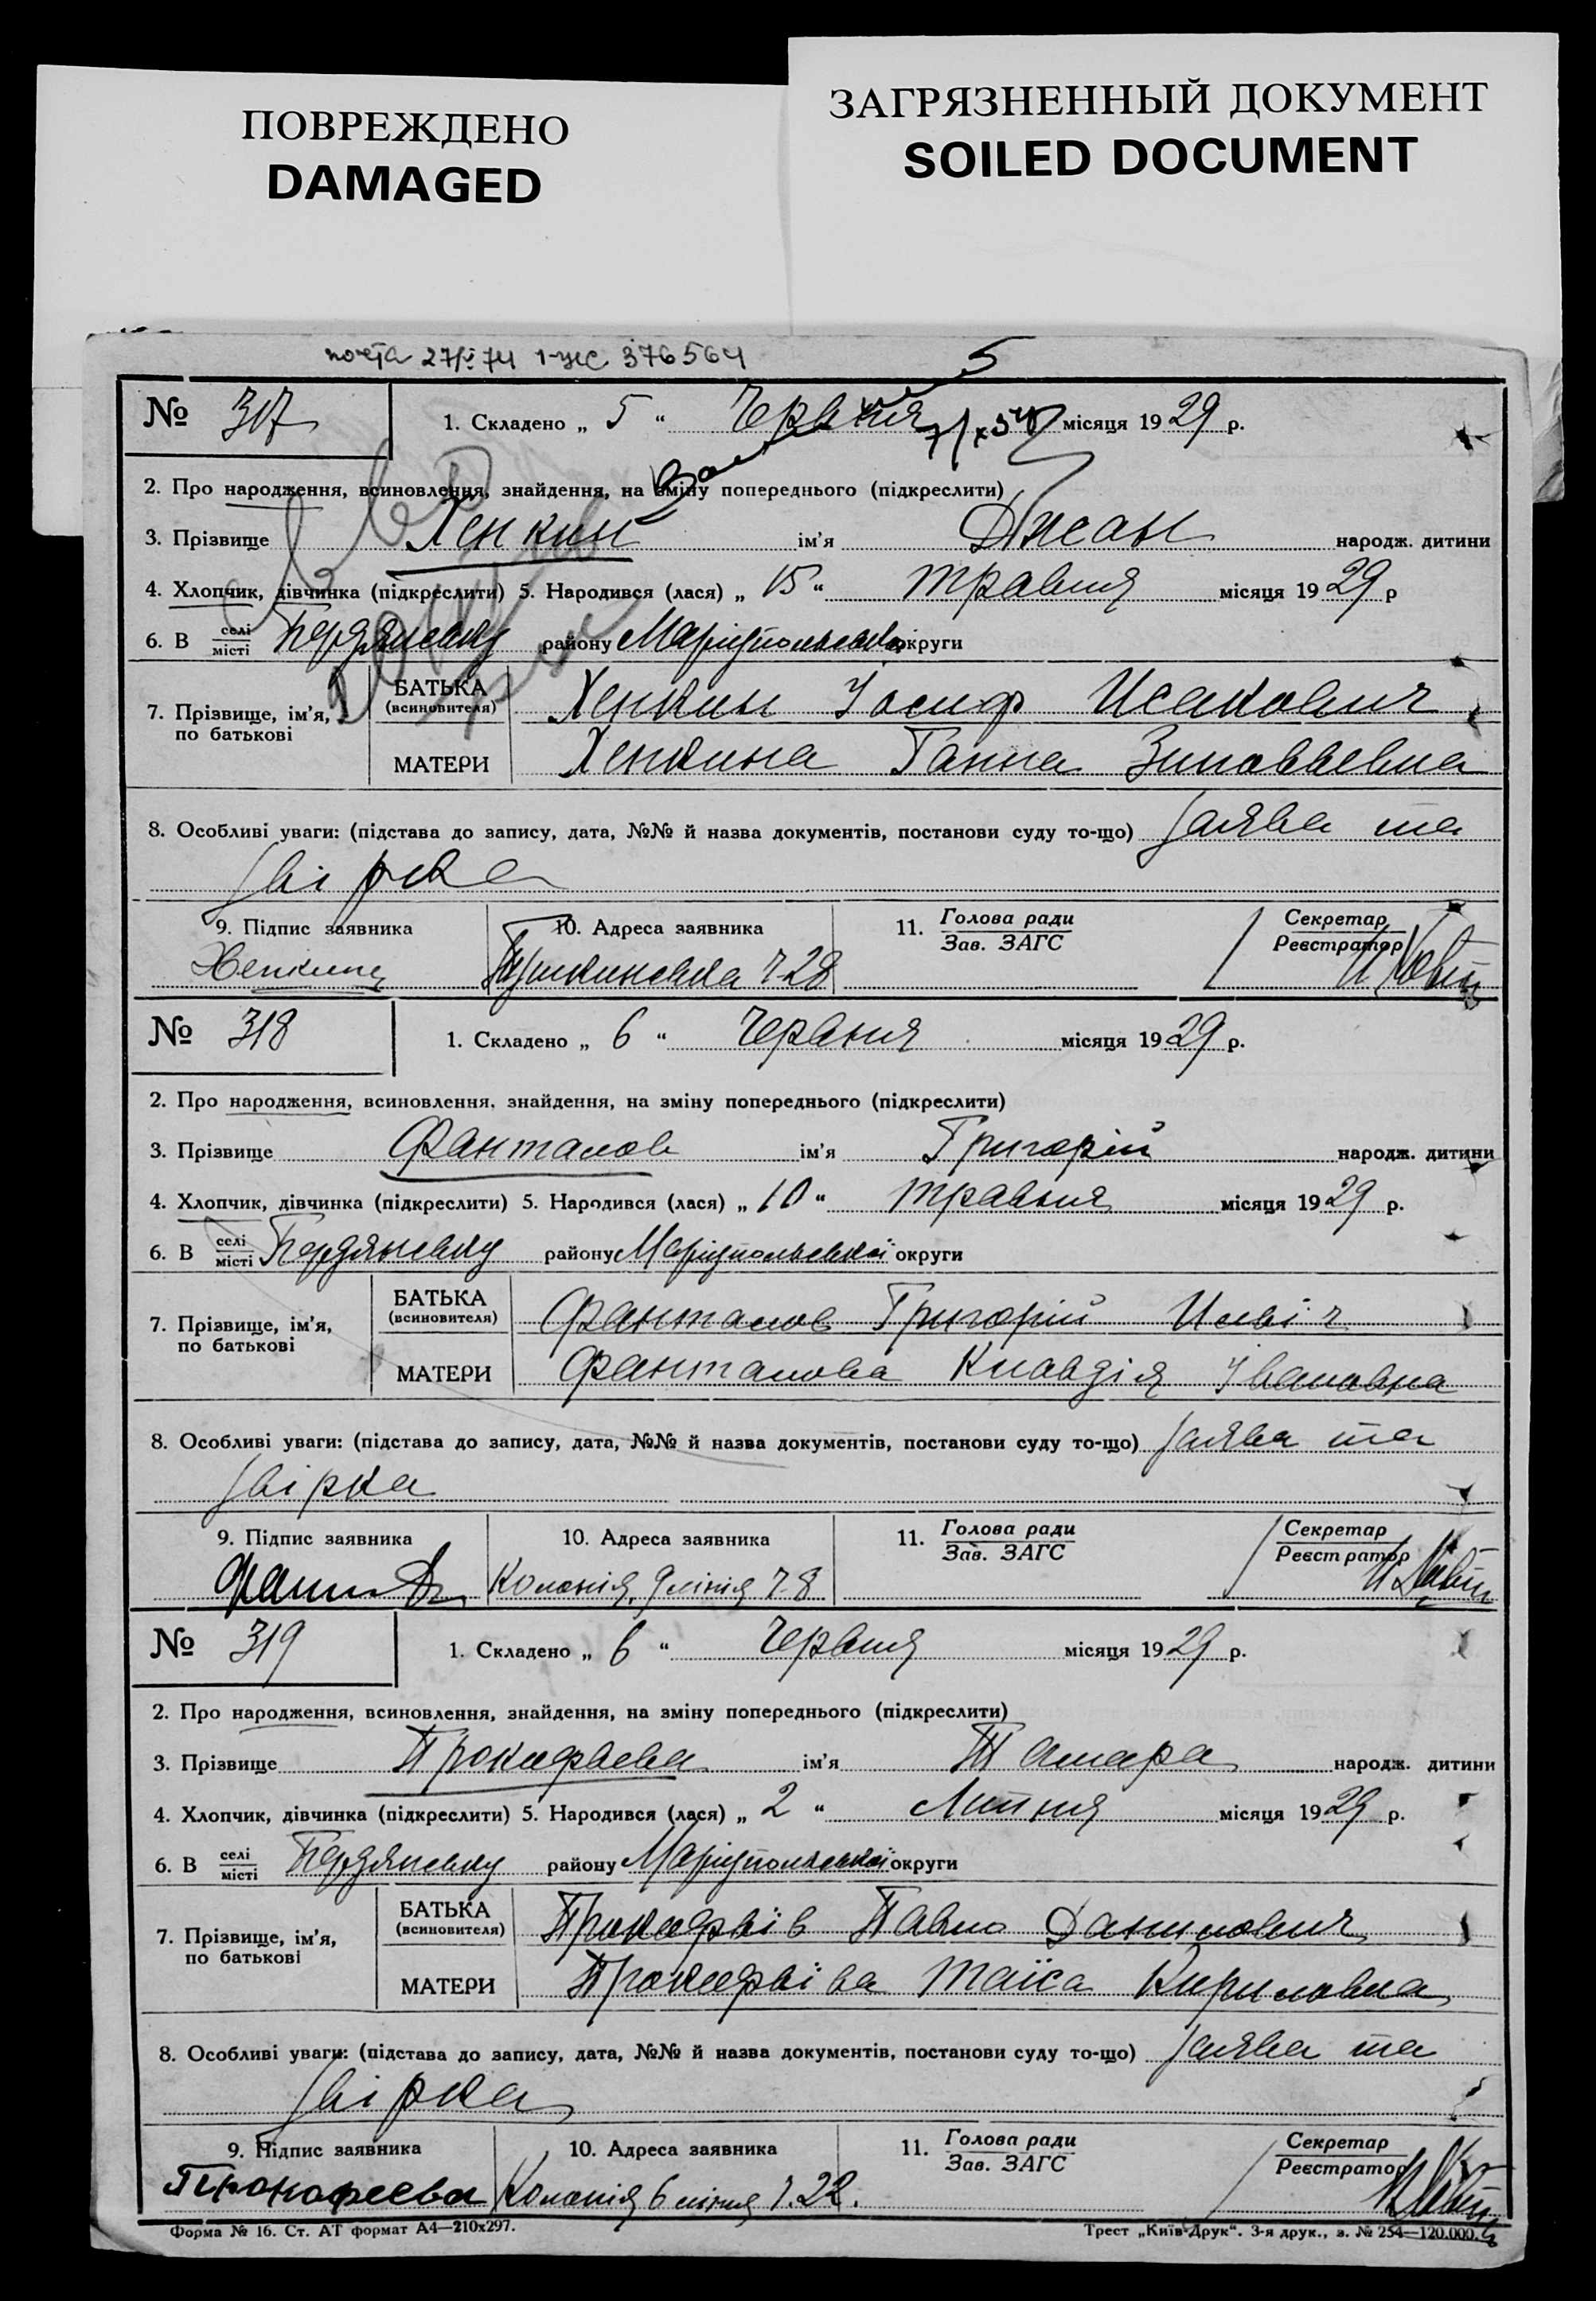 ПОВРЕЖДЕНО
DAMAGED
ЗАГРЯЗНЕННЫЙ ДОКУМЕНТ
SOILED DOCUMENT
почта 27/ 74 376564
№ 317 1. Складено „ 5 “ Червня місяця 1929 р.
2. Про народження, всиновлення, знайдення, на зміну попереднього (підкреслити)
3. Прізвище Хенкин ім'я народж. дитини
4. Хлопчик, дівчинка (підкреслити) 5. Народився (лася) „ 15 “ травня місяця 1929 р
6. В селі місті Бердянську району Маріупольської округи
7. Прізвище, ім'я, по батькові
БАТЬКА (всиновителя) Хенкин Іосиф Исакович
МАТЕРИ Хенкина Ганна Зиновьевна
8. Особливі уваги: (підстава до запису, дата, №№ й назва документів, постанови суду то-що) заява та
звірка
9. Підпис заявника 10. Адреса заявника 11. Голова ради Зав. ЗАГС Секретар Реєстратор
Хенкин Пушкинська 728
№ 318 1. Складено „ 6 “ Червня місяця 1929 р.
2. Про народження, всиновлення, знайдення, на зміну попереднього (підкреслити)
3. Прізвище Фанталов ім'я Григорій народж. дитини
4. Хлопчик, дівчинка (підкреслити) 5. Народився (лася) „ 10 “ травня місяця 1929 р.
6. В селі місті Бердянську району Маріупольської округи
7. Прізвище, ім'я, по батькові
БАТЬКА (всиновителя) Фанталов Григорій Ильіч
МАТЕРИ Фанталова Клавдія Івановна
8. Особливі уваги: (підстава до запису, дата, №№ й назва документів, постанови суду то-що) заява та
звірка
9. Підпис заявника 10. Адреса заявника 11. Голова ради Зав. ЗАГС Секретар Реєстратор
Колонія, 9 лінія 78
№ 319 1. Складено „ 6 “ Червня місяця 1929 р.
2. Про народження, всиновлення, знайдення, на зміну попереднього (підкреслити)
3. Прізвище Прокофьева ім'я Тамара народж. дитини
4. Хлопчик, дівчинка (підкреслити) 5. Народився (лася) „ 2 “ Липня місяця 1929 р.
6. В селі місті Бердянську району Маріупольської округи
7. Прізвище, ім'я, по батькові
БАТЬКА (всиновителя) Прокофьів Павло Данилович
МАТЕРИ Прокофьіва Таїса Кириловна
8. Особливі уваги: (підстава до запису, дата, №№ й назва документів, постанови суду то-що) заява та
звірка
9. Підпис заявника 10. Адреса заявника 11. Голова ради Зав. ЗАГС Секретар Реєстратор
Прокофеева Колонія 6 лінія 7.22.
Форма № 16. Ст. АТ формат А4—210x297. Трест „Київ-Друк“. 3-я друк., з. № 254—120.000.